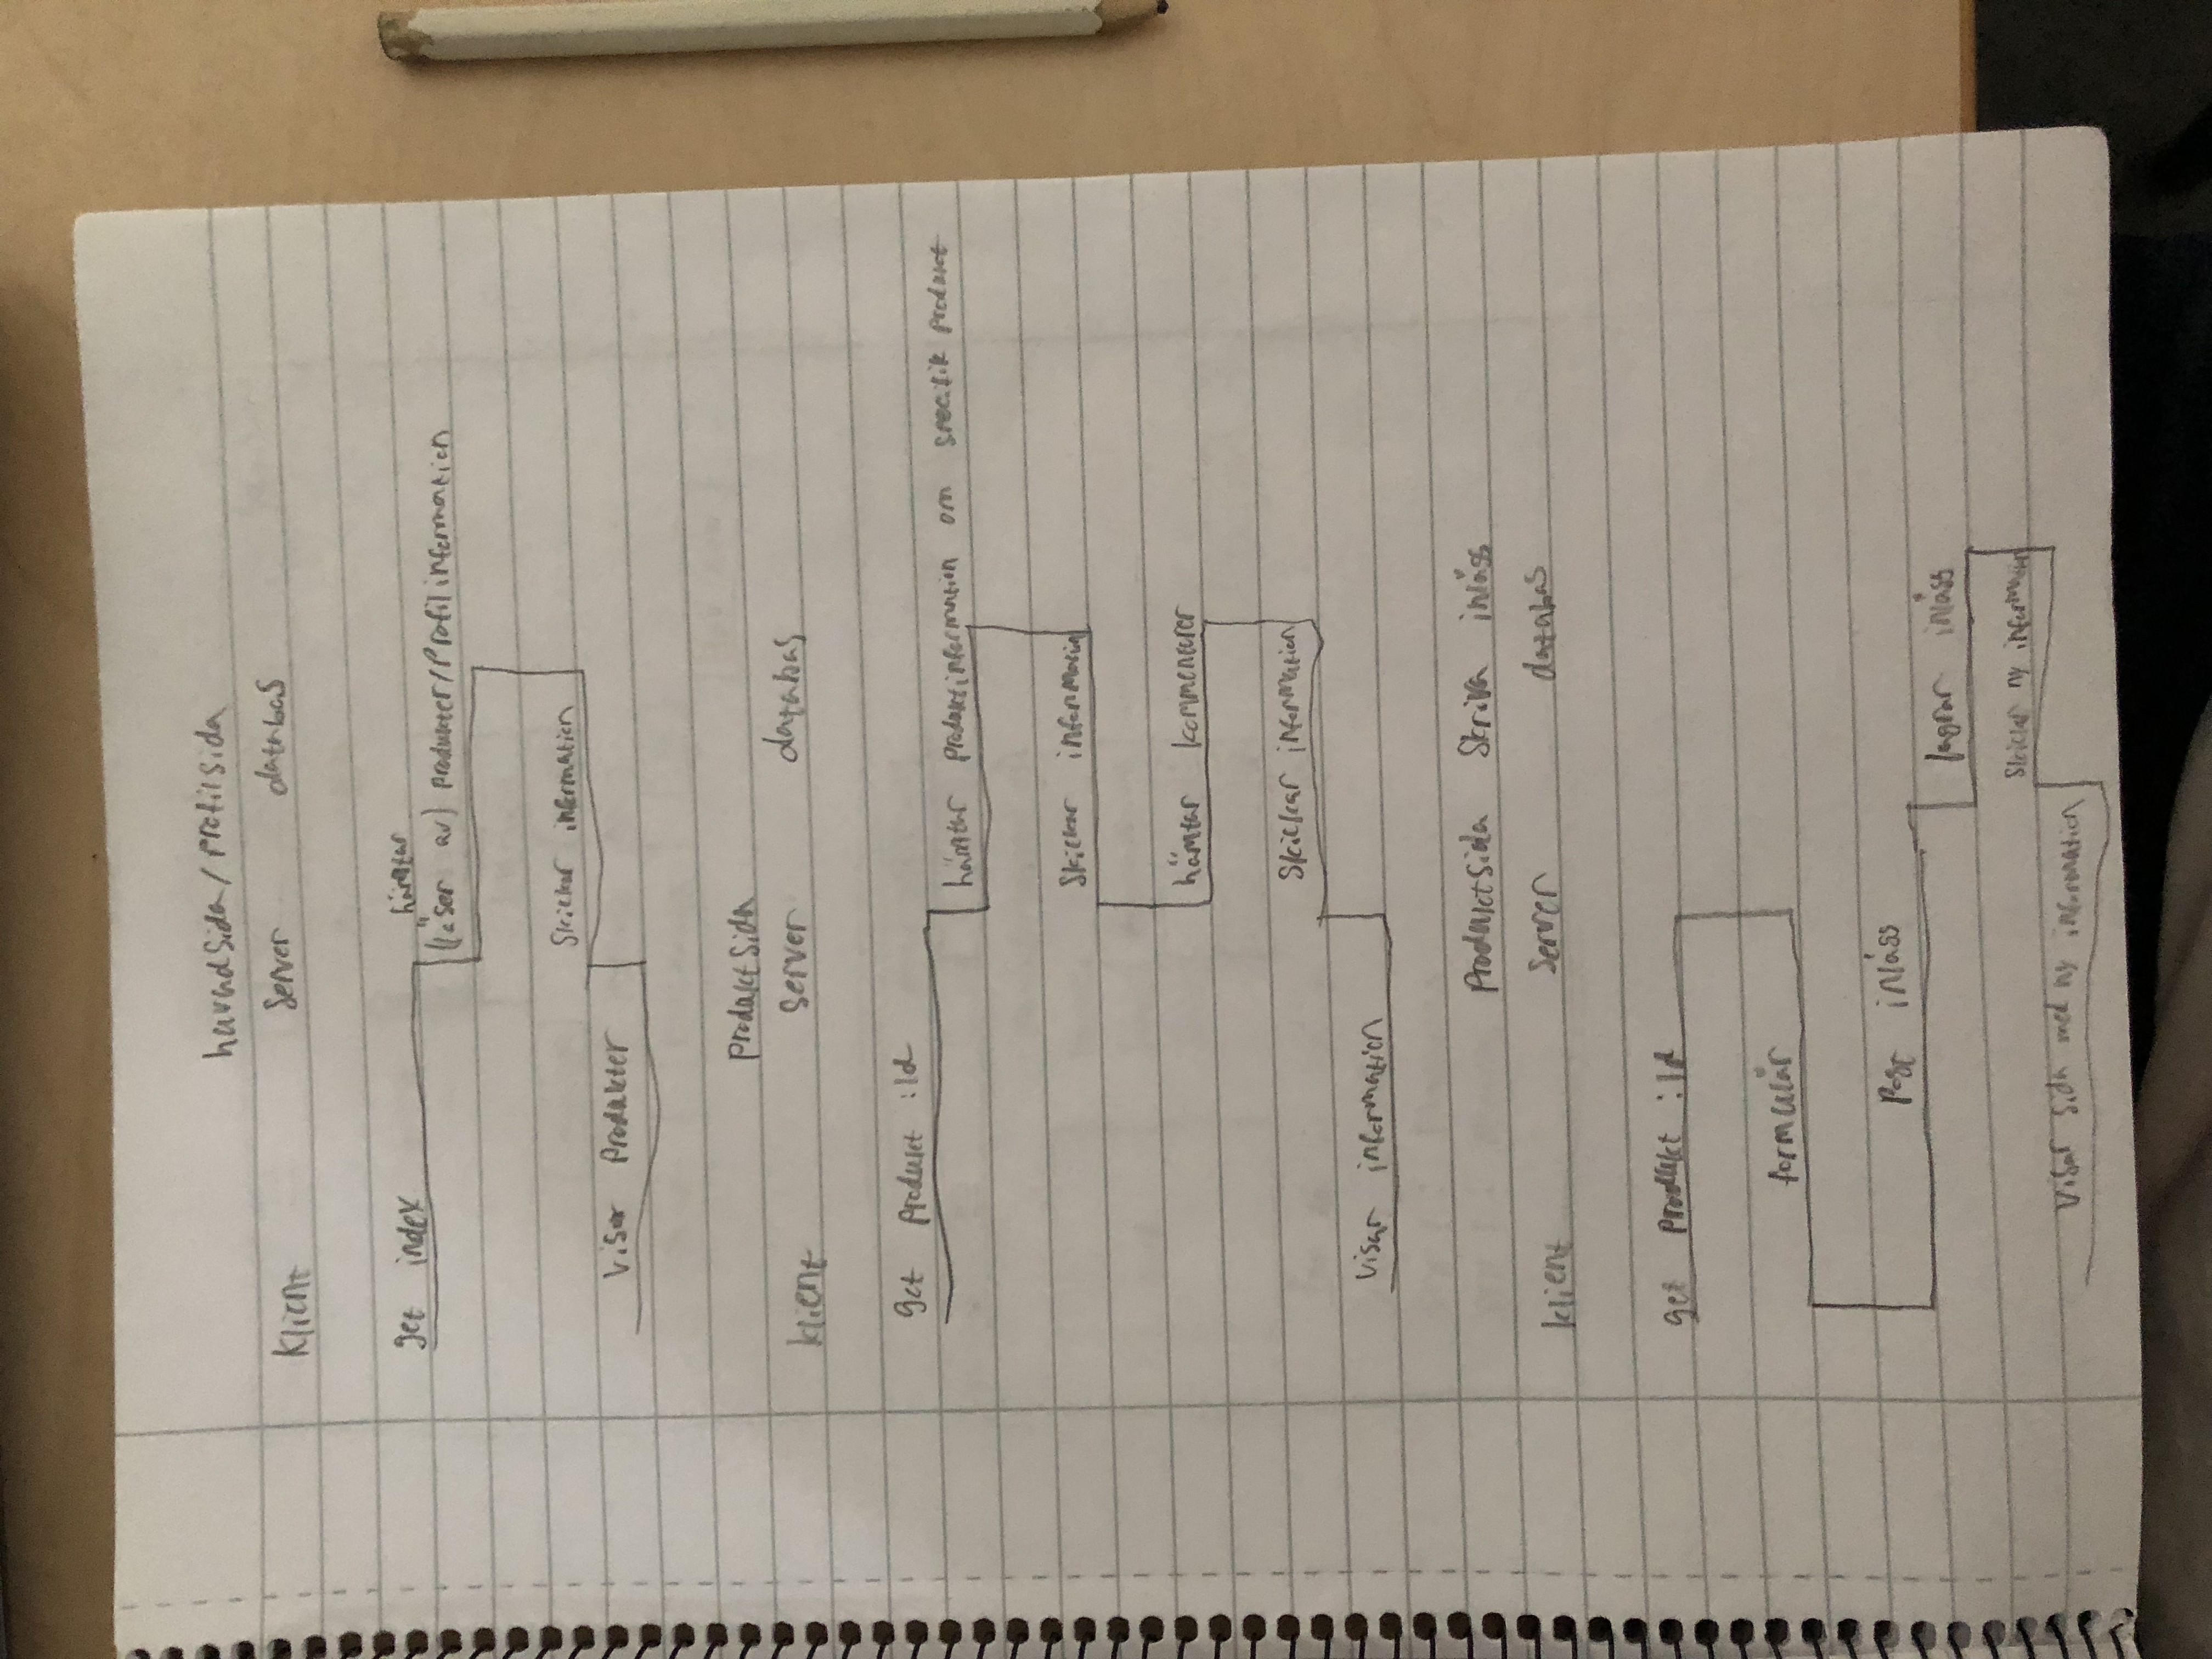 huvudsida/profilsida
Klient server databas
get index
hämtar
(läser av) produkter/profilinformation
Skickar information
Visar produkter
produktsida
klient server databas
get produkt :id
hämtar produktinformation om specifik produkt
Skickar information
hämtar kommenterer
Skickar information
visar information
Produktsida Skriva inlägg
klient server databas
get produkt :id
formulär
Post inlägg
lagrar inlägg
Skickar ny information
Visar sida med ny information